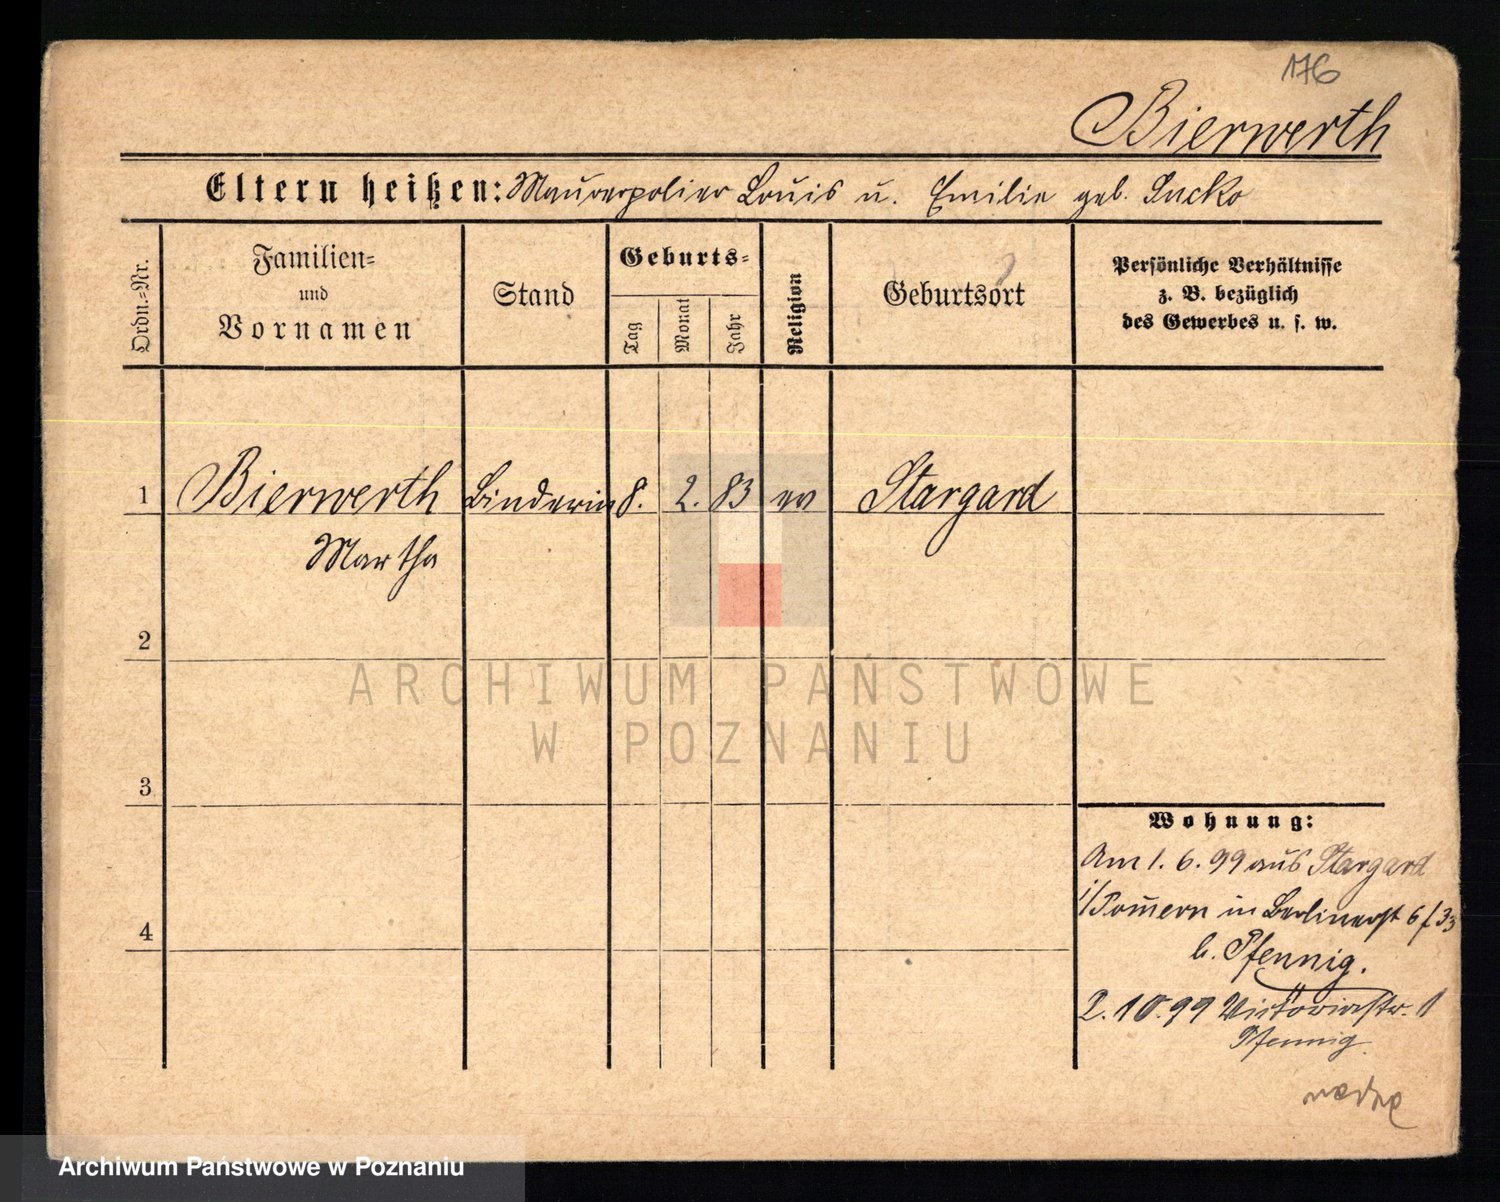 176
Bierwerth
Eltern heißen: Maurerpolier Louis u. Emilie geb. Sucko
Ordn.=Nr.
Familien=
und
Vornamen
Stand
Geburts=
Tag
Monat
Jahr
Religion
Geburtsort
Persönliche Verhältnisse
z. B. bezüglich
des Gewerbes u. s. w.
1 Bierwerth Binderin 8. 2. 83 ev Stargard
Martha
2
ARCHIWUM PAŃSTWOWE
W POZNANIU
3
Wohnung:
Am 1. 6. 99 aus Stargard
i/Pom̄ern in Berlinerst 6 f 33
4
b. Pfennig.
2. 10. 99 Victoriastr. 1
Pfennig.
Archiwum Państwowe w Poznaniu